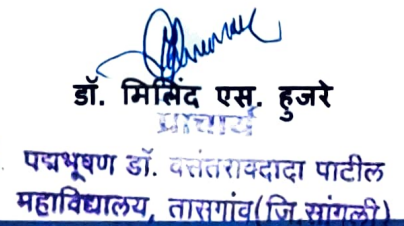 डॉ. मिलिंद एस. हुजरे
प्राचार्य
पद्मभूषण डॉ. वसंतरावदादा पाटील
महाविद्यालय, तासगांव(जि.सांगली)